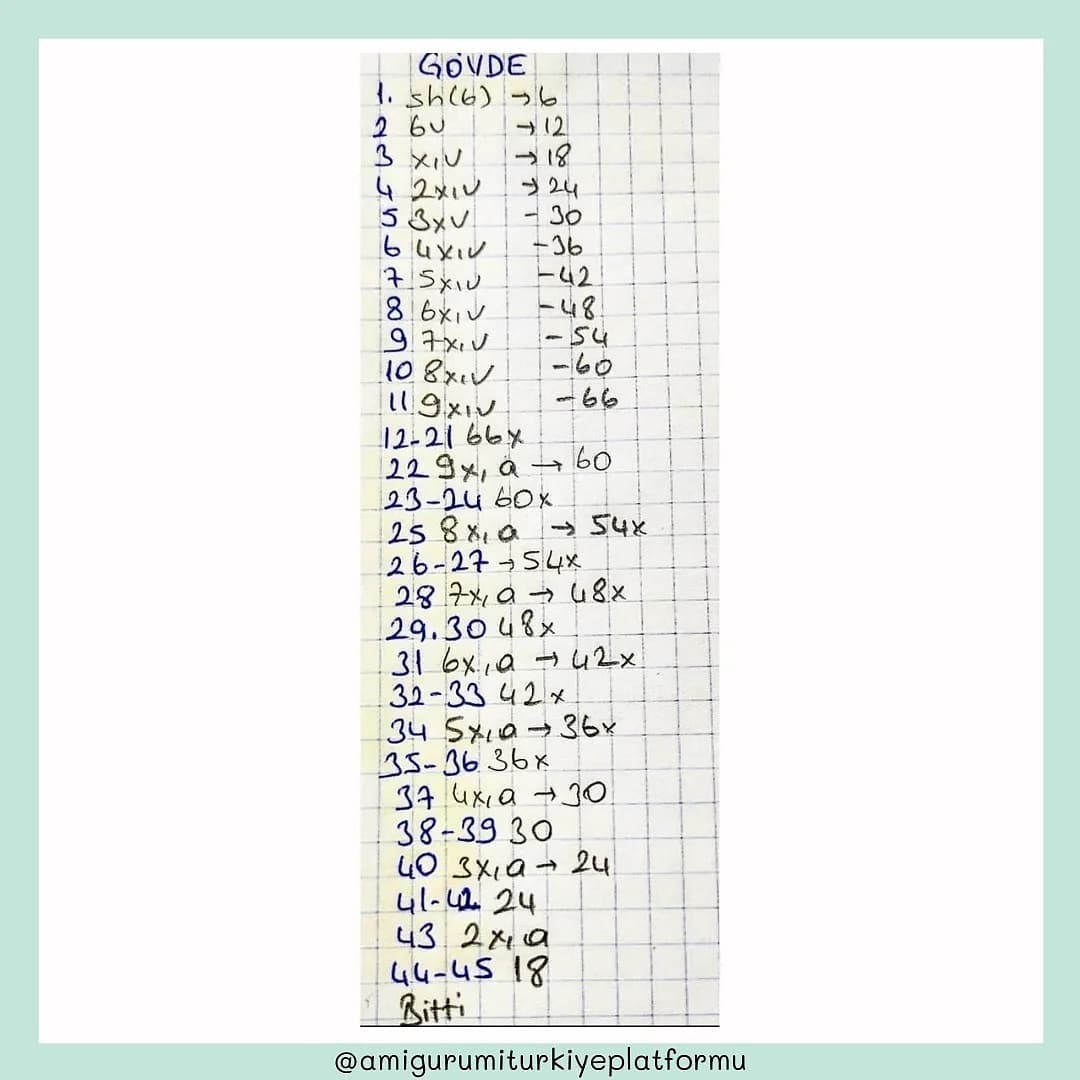 GÖVDE
1. sh(6) → 6
2 6v → 12
3 x,v → 18
4 2x,v → 24
5 3xv - 30
6 4x,v - 36
7 5x,v - 42
8 6x,v - 48
9 7x,v - 54
10 8x,v - 60
11 9x,v - 66
12-21 66x
22 9x, a → 60
23-24 60x
25 8x, a → 54x
26-27 → 54x
28 7x, a → 48x
29.30 48x
31 6x, a → 42x
32-33 42x
34 5x, a → 36x
35-36 36x
37 4x, a → 30
38-39 30
40 3x, a → 24
41-42 24
43 2x, a
44-45 18
Bitti
@amigurumiturkiyeplatformu